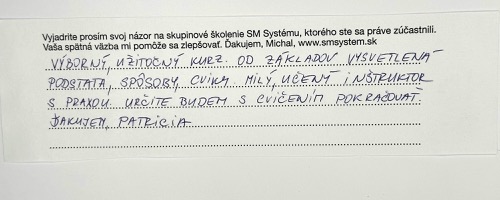 Vyjadrite prosím svoj názor na skupinové školenie SM Systému, ktorého ste sa práve zúčastnili.
Vaša spätná väzba mi pomôže sa zlepšovať. Ďakujem, Michal, www.smsystem.sk
VÝBORNÝ, UŽITOČNÝ KURZ. OD ZÁKLADOV VYSVETLENÁ
PODSTATA, SPÔSOBY, CVIKY. MILÝ, UČENÝ INŠTRUKTOR
S PRAXOU. URČITE BUDEM S CVIČENÍM POKRAČOVAŤ.
ĎAKUJEM, PATRICIA